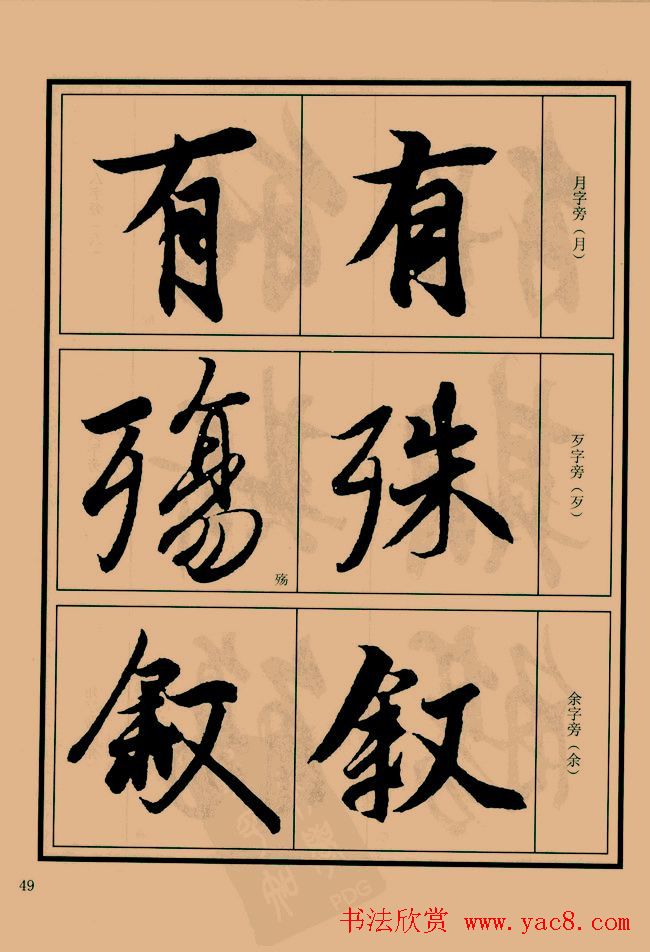 月字旁（月）
有
有
歹字旁（歹）
殊
殇
殇
余字旁（余）
叙
叙
49
书法欣赏 www.yac8.com